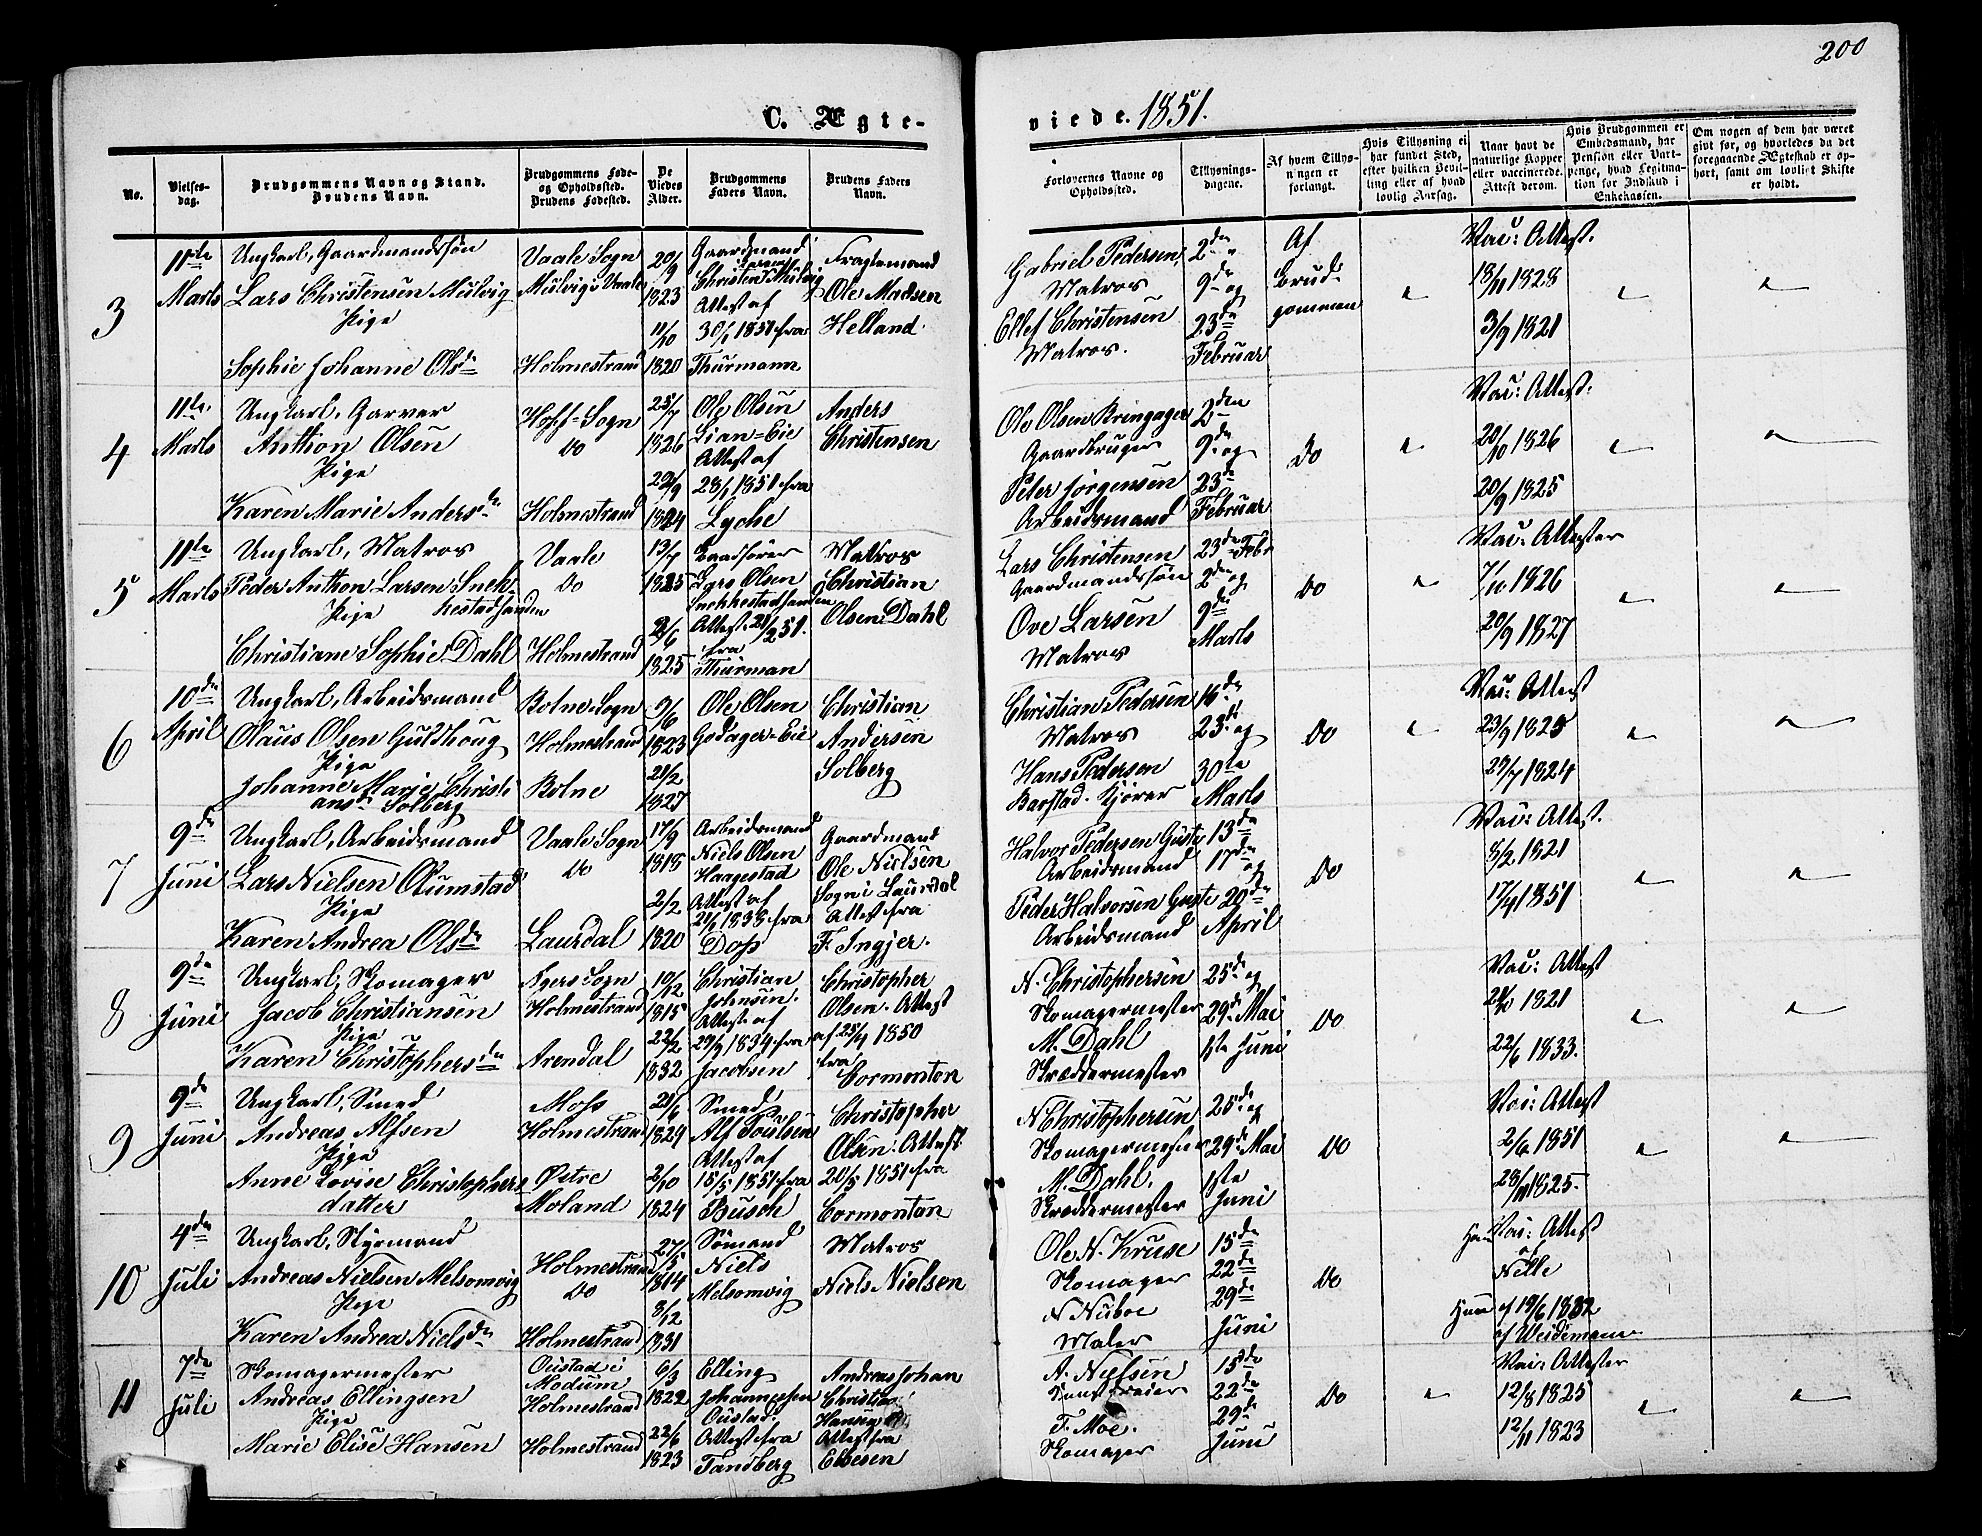 200
C. Ægte-
viede. 1851.
No.
Vielses-
dag.
Brudgommens Navn og Stand.
Brudens Navn.
Brudgommens Føde-
og Opholdssted.
Brudens Fødested.
De
Viedes
Alder.
Brudgommens
Faders Navn.
Brudens Faders
Navn.
Forlovernes Navne og
Opholdssted.
Tillysnings-
dagene.
Af hvem Tillys-
ningen er
forlangt.
Hvis Tillysning ei
har fundet Sted,
efter hvilken Bevil-
ling eller af hvad
lovlig Aarsag.
Naar havt de
naturlige Kopper
eller vaccinerede.
Attest derom.
Hvis Brudgommen er
Embedsmand, har
Pension eller Vart-
penge, hvad Legitima-
tion for Indskud i
Enkekassen.
Om nogen af dem har været
givt før, og hvorledes da det
foregaaende Ægteskab er op-
hørt, samt om lovligt Skifte
er holdt.
3
11te
Marts
Ungkarl, Gaardmandssøn
Lars Christensen Mulvig
Pige
Sophie Johanne Olsd.
Vaale Sogn
Mulvig i Vaale
Holmestrand
20/9
1823
11/10
1820
Gaardmand
Christen Mulvig
Attest af
30/1 1851 fra
Thurmann
Fragtemand
Ole Madsen
Helland
Gabriel Pedersen,
Matros
Ellef Christensen
Matros.
2den
9de og
23de
Februar
Af
Brud-
gommen
Vac: Attest.
18/11 1828
3/9 1821
4
11te
Marts
Ungkarl, Garver
Anthon Olsen
Pige
Karen Marie Andersd.
Hoff Sogn
Do
Holmestrand
25/7
1826
22/9
1824
Ole Olsen
Lian-Eie
Attest af
28/1 1851 fra
Lyche
Anders
Christensen
Ole Olsen Bringager
Gaardbruger
Peter Jørgensen
Arbeidsmand
2den
9de og
23de
Februar
Do
Vac: Attest.
20/10 1826
20/9 1825
5
11te
Marts
Ungkarl, Matros
Peder Anthon Larsen Snek-
Pige kestadsanden
Christiane Sophie Dahl
Vaale
Do
Holmestrand
13/7
1825
2/6
1825
Lars Olsen
Snekkestadsanden
Attest 21/2 51.
fra
Thurman
Matros
Christian
Olsen Dahl
Lars Christensen
Gaardmandssøn
Ove Larsen
Matros
23de Febr
2den og
9de
Marts
Do
Vac: Attester
7/10 1826
20/9 1827
6
10de
April
Ungkarl, Arbeidsmand
Olaus Olsen Guldhoug
Pige
Johanne Marie Christi
ansd. Solberg
Botne Sogn
Holmestrand
Botne
9/6
1823
21/2
1827
Ole Olsen
Godager-Eie
Christian
Andersen
Solberg
Christian Pedersen
Matros
Hans Pedersen
Barstad. Kjører
16de
23de og
30te
Marts
Do
Vac: Attest
23/9 1825
29/7 1824
7
9de
Juni
Ungkarl, Arbeidsmand
Lars Nielsen Olumstad
Pige
Karen Andrea Olsd.
Vaale Sogn
Do
Laurdal
17/9
1818
2/2
1820
Arbeidsmand
Niels Olsen
Haagestad
Attest af
21/6 1838 fra
Doss
Gaardmand
Ole Nielsen
Sogn i Laurdal
Attest fra
F. Ingjer.
Halvor Pedersen Guste
Arbeidsmand
Peder Halvorsen Guste
Arbeidsmand
13de
17de og
20de
April
Do
Vac: Attest.
8/2 1821
17/4 1851
8
9de
Juni
Ungkarl, Skomager
Jacob Christiansen
Pige
Karen Christophersd.
Agers Sogn
Holmestrand
Arendal
10/12
1815
22/2
1832
Christian
Johnsen.
Attest af
29/9 1834 fra
Jacobsen
Christopher
Olsen. Attest
af 25/4 1850
fra
Cormonton
N. Christophersen
Skomagermester
M. Dahl
Skræddermester
25de og
29de Mai
1ste Juni
Do
Vac: Attest
1821
22/6 1833.
9
9de
Juni
Ungkarl, Smed
Andreas Alfsen
Pige
Anne Lovise Christophers
datter
Moss
Holmestrand
Østre
Moland
21/6
1829
2/10
1824
Smed
Alf Poulsen
Attest af
15/5 1851 fra
Busch
Christopher
Olsen. Attest
20/5 1851 fra
Cormonton
N Christophersen
Skomagermester
M. Dahl.
Skræddermester
25de og
29de Mai
1ste
Juni
Do
Vac: Attest
2/6 1851
28/11 1825.
10
4de
Juli
Ungkarl, Styrmand
Andreas Nielsen Melsomvig
Pige
Karen Andrea Nielsd.
Holmestrand
Do
Holmestrand
27/5
1814
8/12
1831
Sømand
Niels
Melsomvig
Matros
Niels Nielsen
Ole N. Kruse
Skomager
N Nuboe
Maler
15de
22de
29de
Juni
Do
Vac: Attest
Hun af 19/6 1832
af Weidemann
11
7de
Juli
Skomagermester
Andreas Ellingsen
Pige
Marie Elise Hansen
Oustad i
Modum
Holmestrand
Holmestrand
6/3
1822
22/6
1823
Elling
Johannessen
Oustad.
Attest fra
Tandberg
Andreas Johan
Christian
Hansen
Attest fra
Ebbesen
A. Nielsen
F. Moe.
Skomager
15de
22de
29de
Juni
Do
Vac: Attester
12/8 1825
12/11 1823